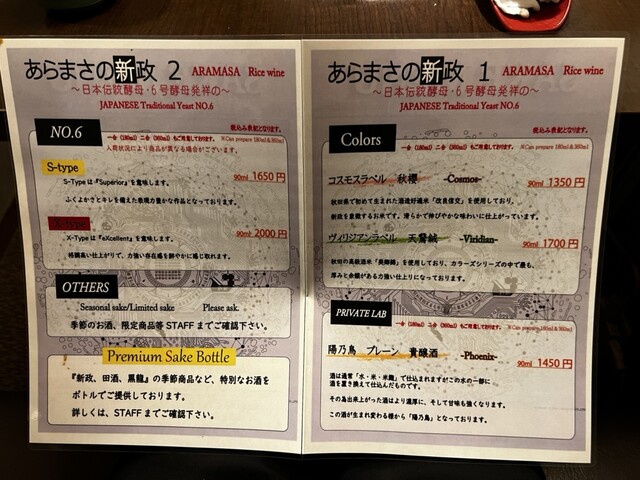 あらまさの新政 2 ARAMASA Rice wine
～日本伝統酵母・6号酵母発祥の～
JAPANESE Traditional Yeast NO.6
税込み表記となります。
NO.6
一合 (180ml) 二合 (360ml) もご用意しております。 ※Can prepare 180ml&360ml
入荷状況により商品が異なる場合がございます。
S-type
90ml 1650円
S-Typeは『Superior』を意味します。
ふくよかさとキレを備えた表現力豊かな作品となっております。
X-type
90ml 2000円
X-Typeは『eXcellent』を意味します。
格調高い仕上がりで、力強い存在感を鮮やかに感じ取れます。
OTHERS
Seasonal sake/Limited sake Please ask.
季節のお酒、限定商品等STAFFまでご確認下さい。
Premium Sake Bottle
『新政、田酒、黒龍』の季節商品など、特別なお酒を
ボトルでご提供しております。
詳しくは、STAFFまでご確認下さい。
あらまさの新政 1 ARAMASA Rice wine
～日本伝統酵母・6号酵母発祥の～
JAPANESE Traditional Yeast NO.6
税込み表記となります。
Colors
一合 (180ml) 二合 (360ml) もご用意しております。 ※Can prepare 180ml&360ml
コスモスラベル 秋櫻 -Cosmos- 90ml 1350円
秋田県で初めて生まれた酒造好適米「改良信交」を使用しており、
新政を象徴するお米です。滑らかで伸びやかな味わいに仕上がっています。
ヴィリジアンラベル 天鵞絨 -Viridian- 90ml 1700円
秋田の高級酒米「美郷錦」を使用しており、カラーズシリーズの中で最も、
厚みと余韻がある力強い仕上りになっております。
PRIVATE LAB
一合 (180ml) 二合 (360ml) もご用意しております。 ※Can prepare 180ml&360ml
陽乃鳥 プレーン 貴醸酒 -Phoenix- 90ml 1450円
酒は通常「水・米・米麹」で仕込まれますがこの水の一部に
酒を置き換えて仕込んだものです。
その為出来上がった酒はより濃厚に、そして甘味も強くなります。
この酒が生まれ変わる様から「陽乃鳥」となっております。